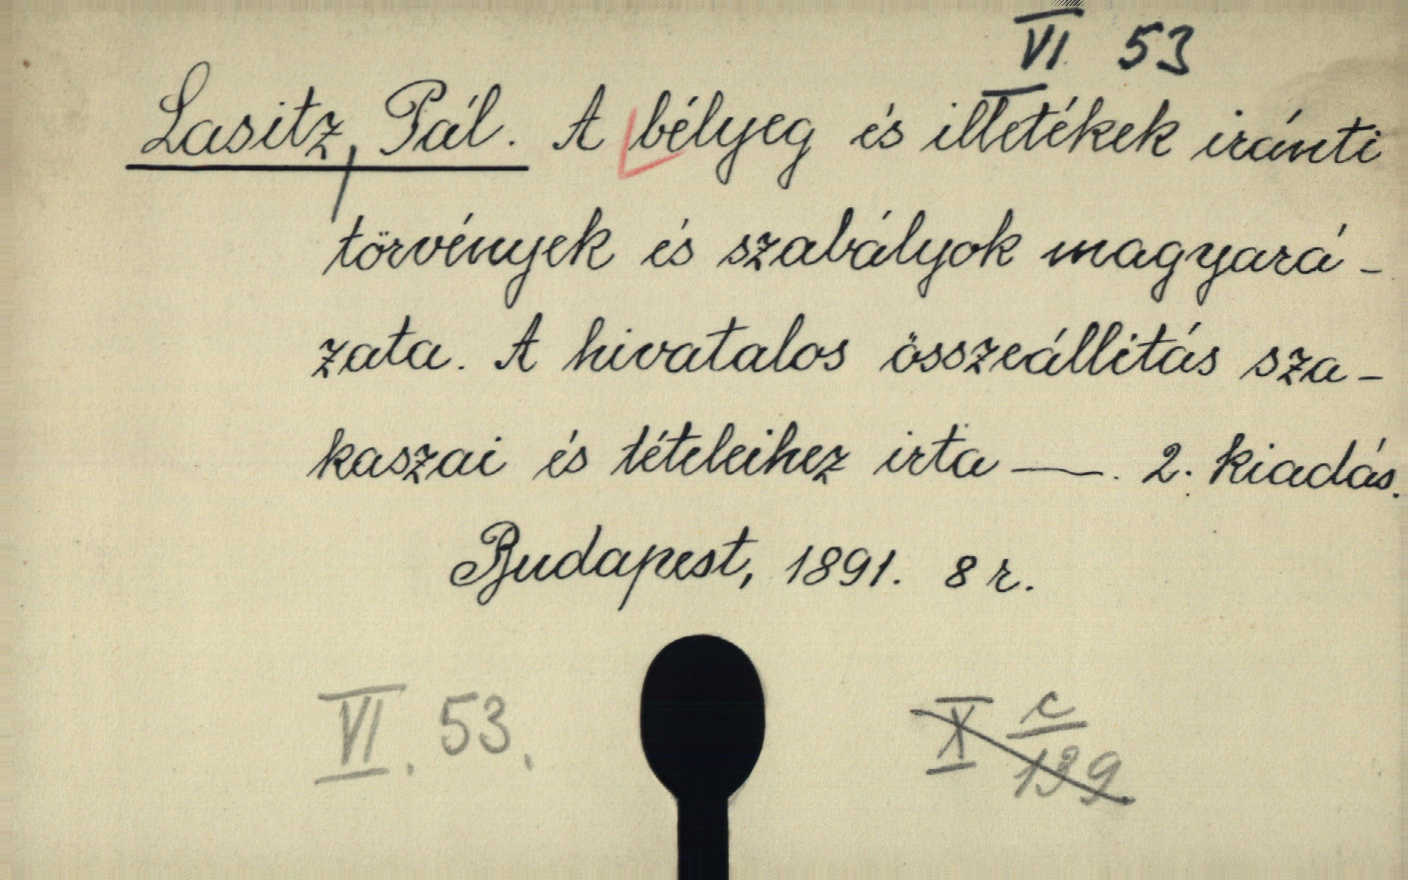 VI 53
Lasitz, Pál. A bélyeg és illetékek iránti
törvények és szabályok magyará-
zata. A hivatalos összeállitás sza-
kaszai és tételeihez irta —. 2. kiadás.
Budapest, 1891. 8 r.
VI. 53.
X c/139